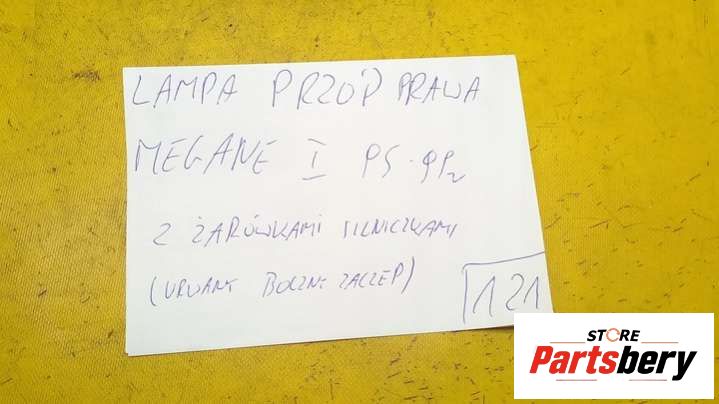 LAMPA PRZÓD PRAWA
MEGANE I PS-9P2
Z ŻARÓWKAMI SILNICZKAMI
(URWANY BOCZNY ZACZEP)
121
STORE
Partsbery